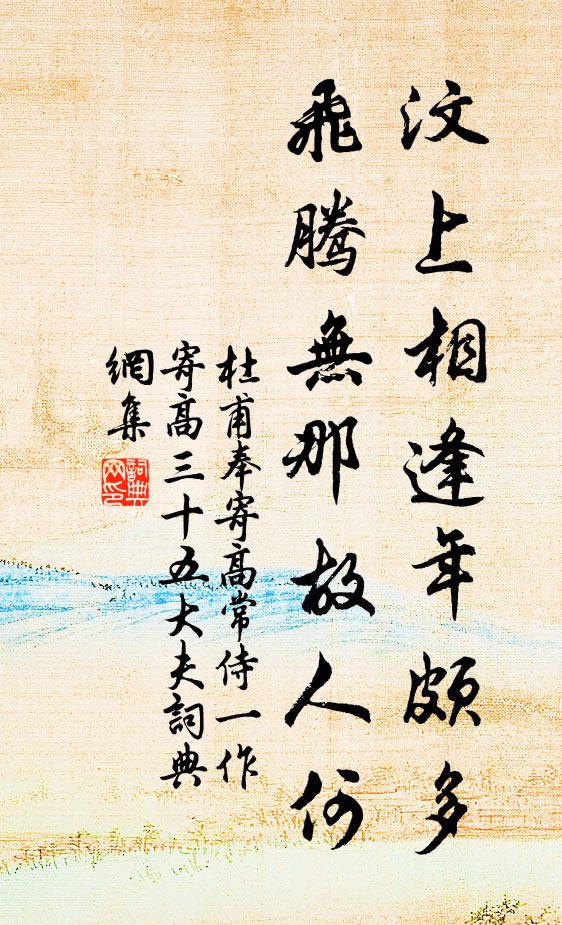 汶上相逢年頗多
飛騰無那故人何
杜甫奉寄高常侍一作
寄高三十五大夫詞典
網集
詞典
网印